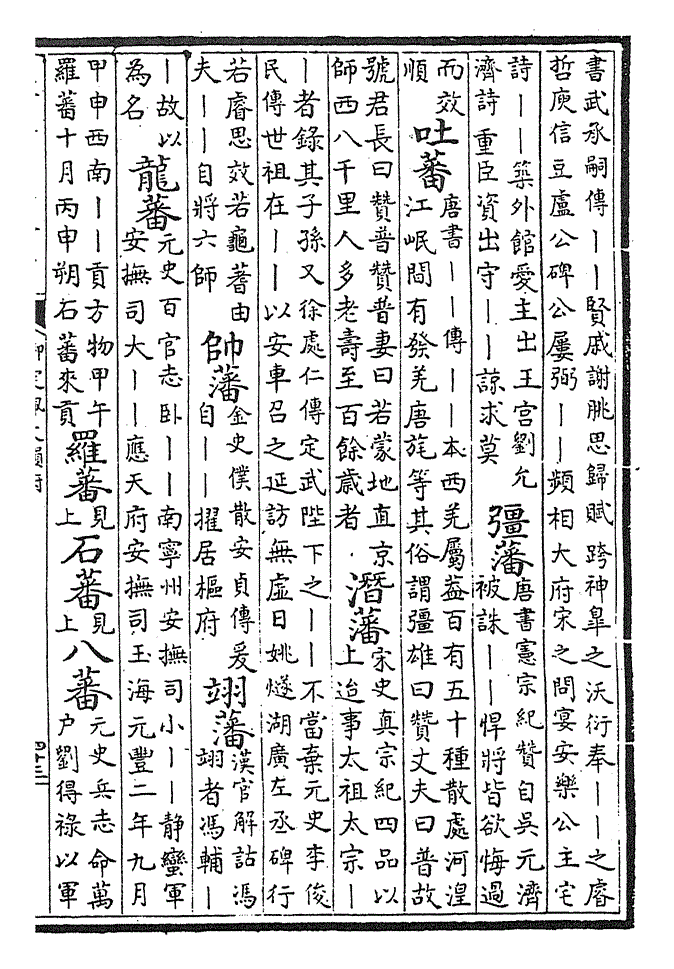 書武承嗣傳——賢戚謝朓思歸賦跨神皐之沃衍奉——之睿
哲庾信豆盧公碑公屢弼——頻相大府宋之問宴安樂公主宅
詩——築外館愛主出王宫劉允
濟詩重臣資出守——諒求莫
彊藩
唐書憲宗紀贊自吳元濟
被誅——悍將皆欲悔過
而效
順
吐蕃
唐書——傳——本西羌屬葢百有五十種散處河湟
江岷間有發羌唐旄等其俗謂彊雄曰贊丈夫曰普故
號君長曰贊普贊普妻曰若蒙地直京
師西八千里人多老壽至百餘歲者
潛藩
宋史真宗紀四品以
上迨事太祖太宗—
—者錄其子孫又徐處仁傳定武陛下之——不當棄元史李俊
民傳世祖在——以安車召之延訪無虛日姚燧湖廣左丞碑行
若睿思效若龜蓍由
夫——自將六師
帥藩
金史僕散安貞傳爰
自——擢居樞府
翊藩
漢官解詁馮
翊者馮輔—
—故以
為名
龍蕃
元史百官志卧——南寧州安撫司小——靜蠻軍
安撫司大——應天府安撫司玉海元豐二年九月
甲申西南——貢方物甲午
羅蕃十月丙申朔石蕃來貢
羅蕃
見
上
石蕃
見
上
八蕃
元史兵志命萬
户劉得祿以軍
四十三